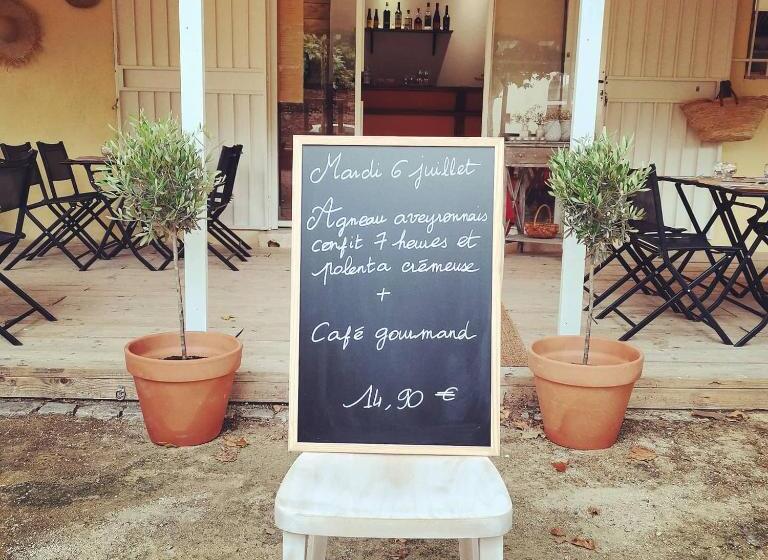 Mardi 6 juillet
Agneau aveyronnais
confit 7 heures et
polenta crémeuse
+
Café gourmand
14,90 €